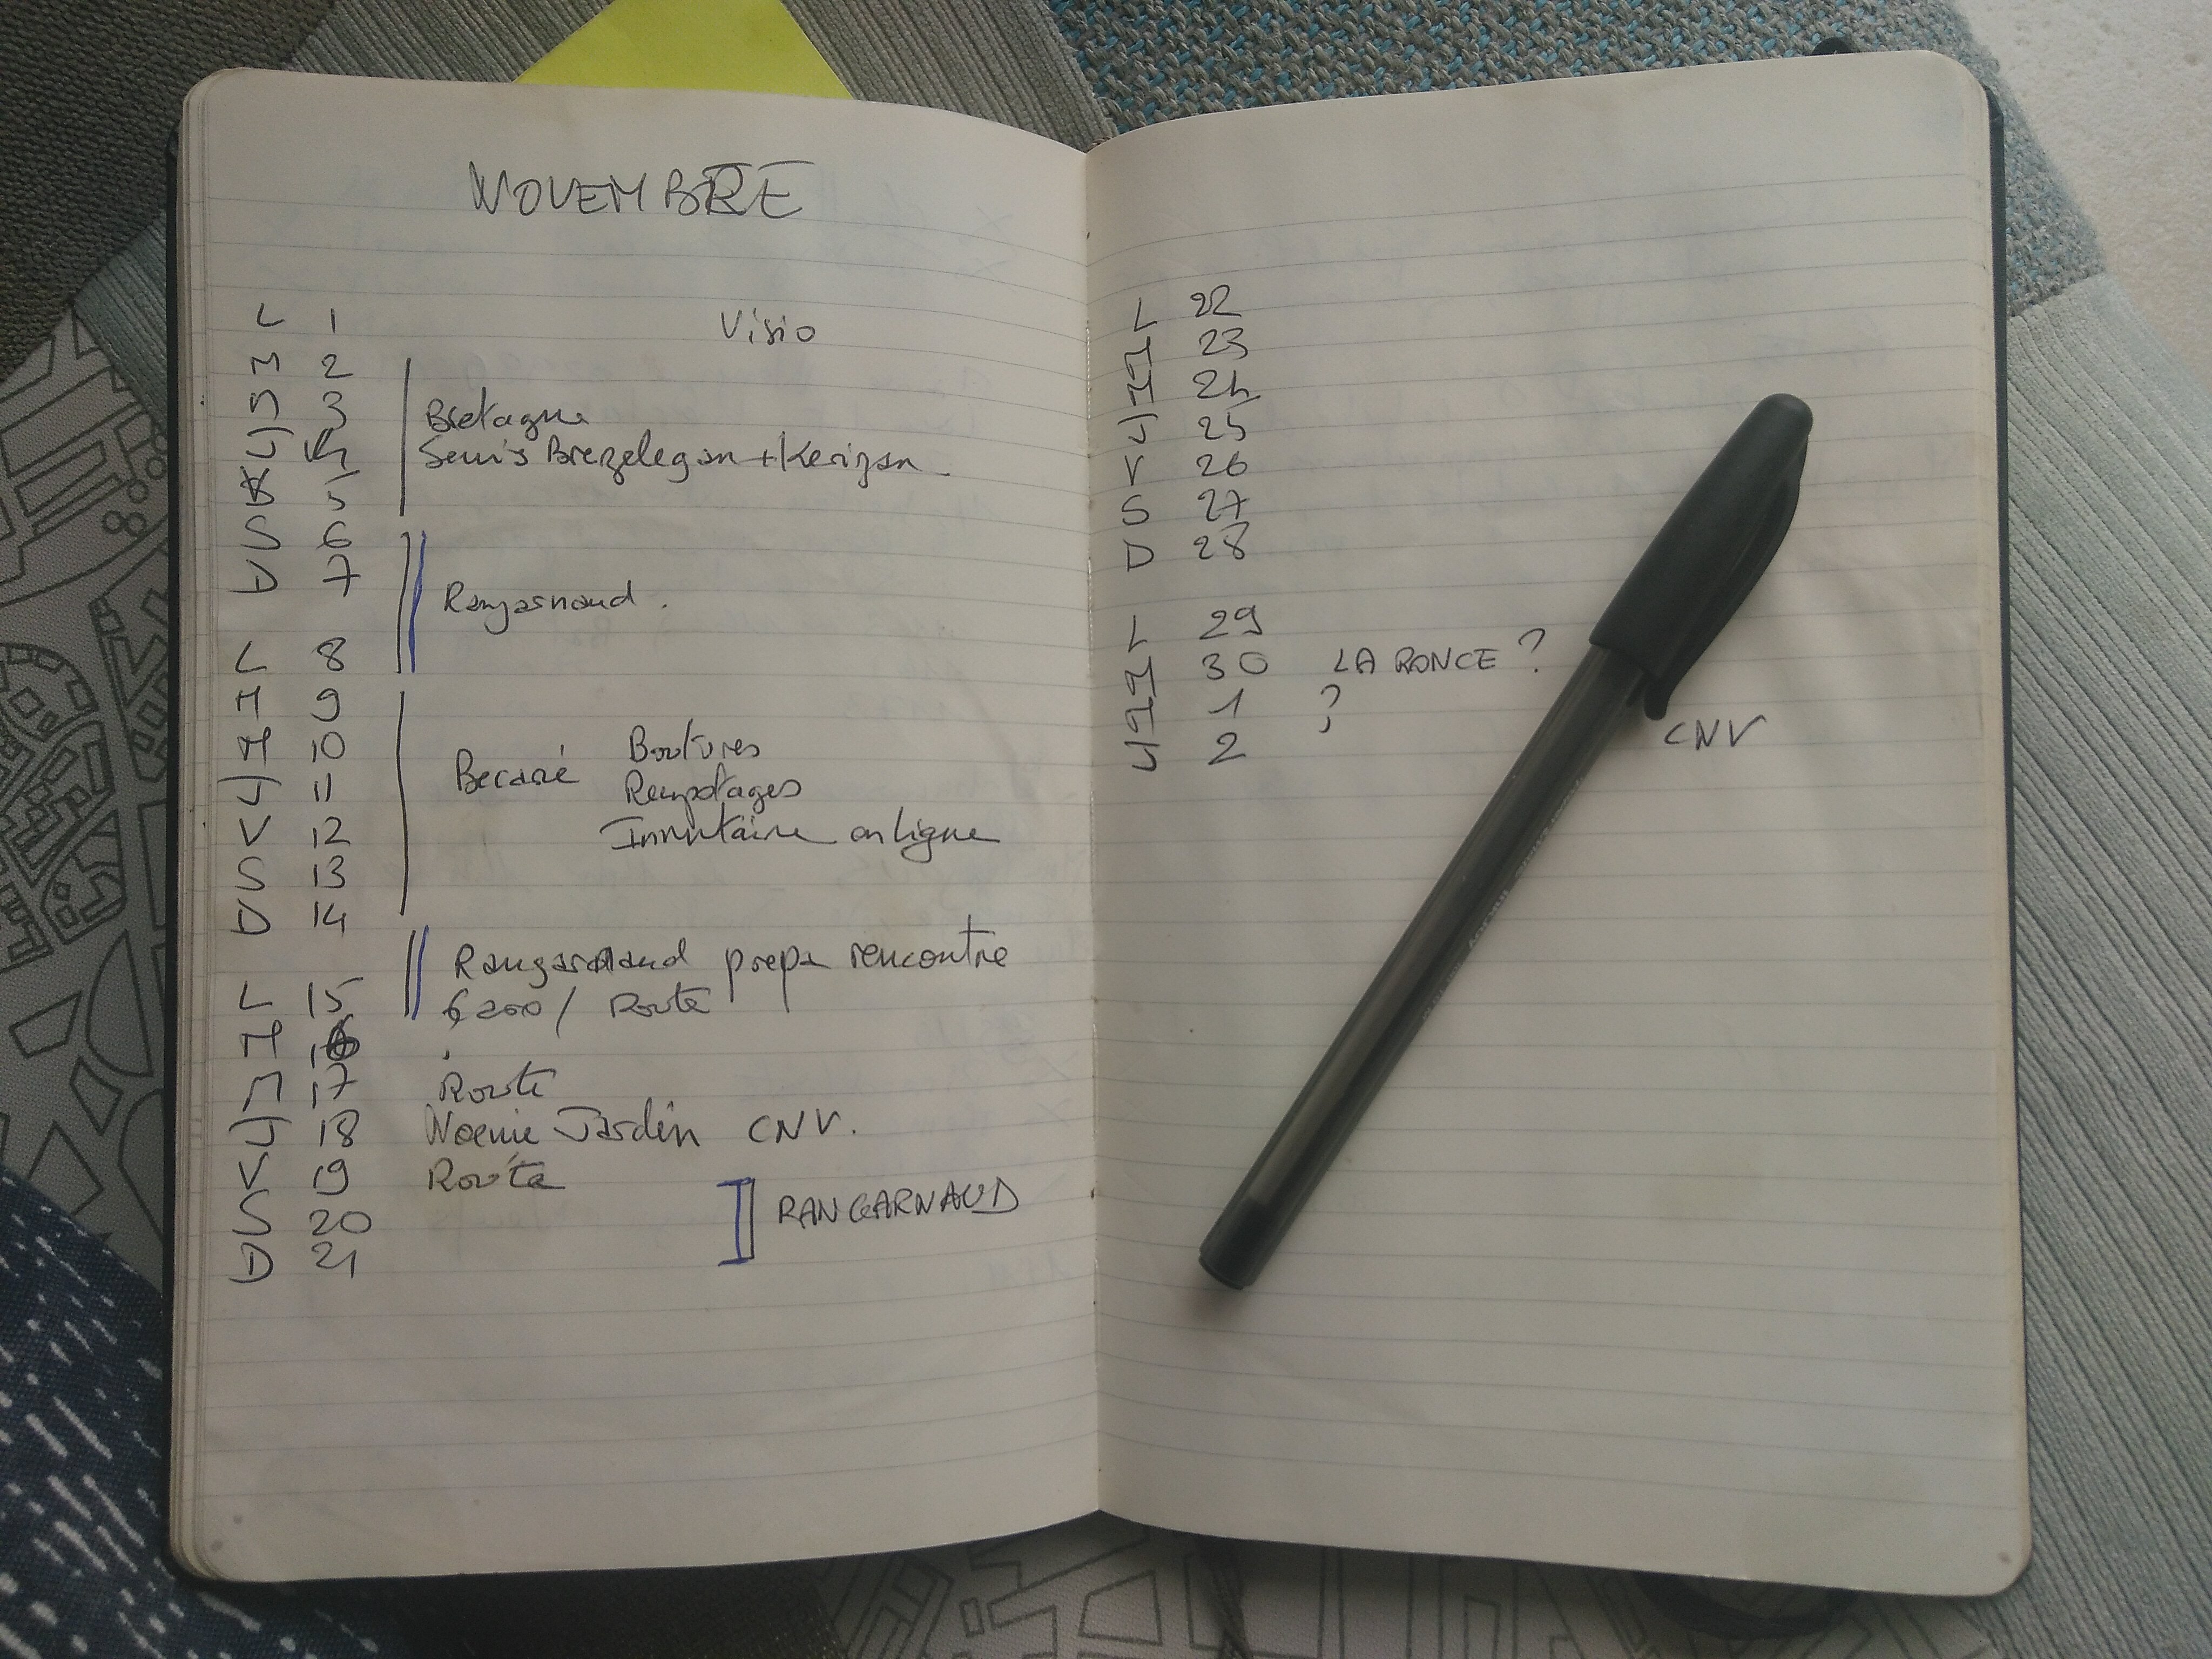 NOVEMBRE
L 1 Visio
M 2
M 3 Bretagne
J 4 Semis Brezelegan + Kerizan
V 5
S 6
D 7 Rangarnaud.
L 8
M 9
M 10 Boutures
J 11 Becané Rempotages
V 12 Inventaire en ligne
S 13
D 14
Rangarnaud prepa rencontre
L 15 / Route
M 16
M 17 Route
J 18 Noemie Jardin CNV.
V 19 Route
S 20 RANGARNAUD
D 21
L 22
M 23
M 24
J 25
V 26
S 27
D 28
L 29
M 30 LA RONCE ?
M 1 ?
J 2 CNV